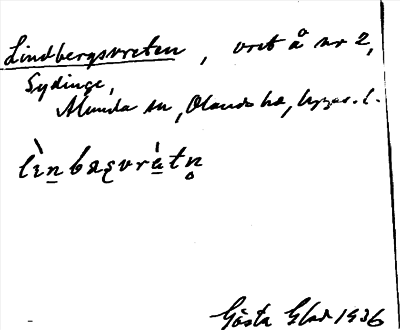 Lindbergsvreten, vret å nr 2,
Sydinge,
Almunda sn, Olands hd, Uppl.
lɛ̀nbærvrátn̥
Gösta Glad 1936